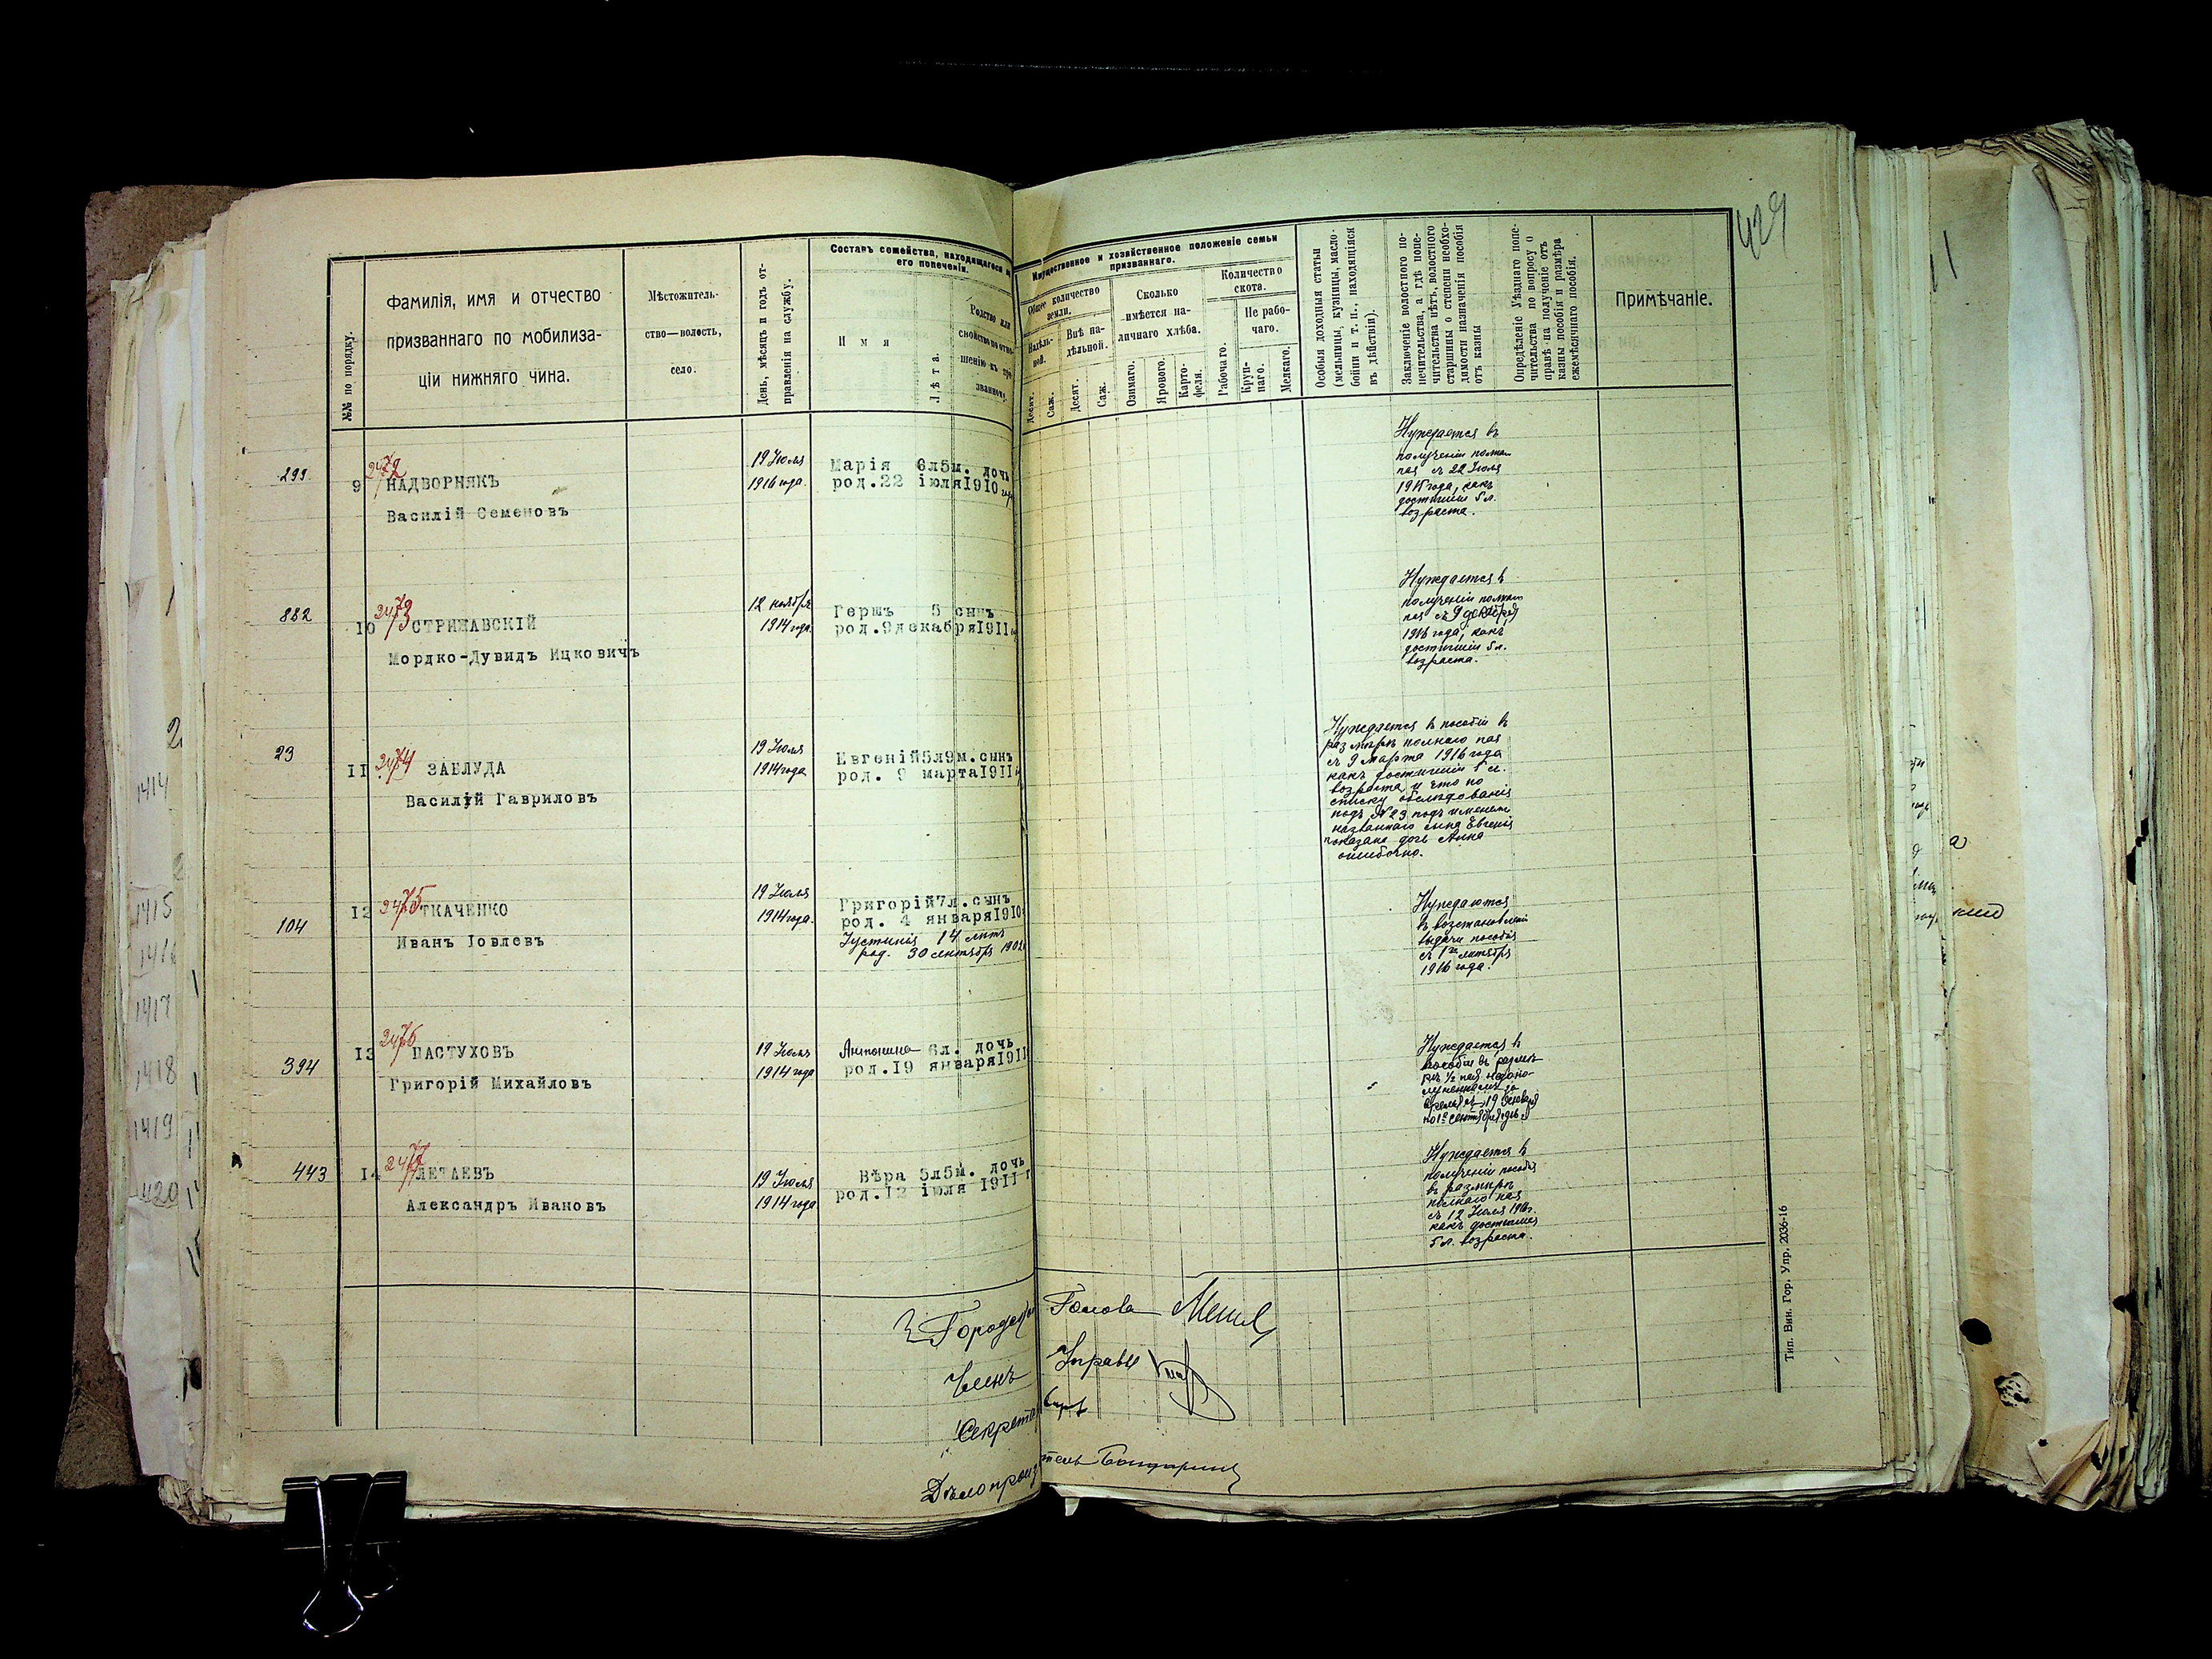 429
№№ по порядку.
Фамилія, имя и отчество
призваннаго по мобилиза-
ціи нижняго чина.
Мѣстожитель-
ство—волость,
село.
День, мѣсяцъ и годъ от-
правленія на службу.
Составъ семейства, находящагося
его попеченіи.
Имя
Лѣта.
Родство или
свойство по отно-
шенію къ при-
званному.
Имущественное и хозяйственное положеніе семьи
призваннаго.
Общее количество
земли.
Надѣль-
ной.
Внѣ на-
дѣльной.
Десят.
Саж.
Десят.
Саж.
Сколько
имѣется на-
личнаго хлѣба.
Озимаго.
Ярового.
Карто-
феля.
Количество
скота.
Рабочаго.
Не рабо-
чаго.
Круп-
наго.
Мелкаго.
Особыя доходныя статьи
(мельницы, кузницы, масло-
бойни и т. п., находящіяся
въ дѣйствіи).
Заключеніе волостного по-
печительства, а гдѣ попе-
чительства нѣтъ, волостного
старшины о степени необхо-
димости назначенія пособія
отъ казны
Опредѣленіе Уѣзднаго попе-
чительства по вопросу о
правѣ на полученіе отъ
казны пособія и размѣра
ежемѣсячнаго пособія.
Примѣчаніе.
299
9
2472
НАДВОРНЯКЪ
Василій Семеновъ
19 Іюля
1916 года.
Марія 6л5м. дочь
род.22 іюля1910
Нуждается въ
полученіи полна
пая съ 22 Іюля
1915 года, какъ
достигшій 5 л.
возраста.
882
10
2473
СТРИЖАВСКІЙ
Мордко-Дувидъ Ицковичъ
12 ноября
1914 года.
Гершъ 5 сынъ
род.9декабря1911
Нуждается въ
полученіи полна
пая съ 9 декабря
1916 года, какъ
достигшій 5 л.
возраста.
23
11
2474
ЗАБЛУДА
Василій Гавриловъ
19 Іюля
1914 года
Евгеній5л9м.сынъ
род. 9 марта1911
Нуждается въ пособіи въ
размѣрѣ полнаго пая
съ 9 Марта 1916 года
какъ достигшій 5 л.
возраста, и что по
списку обслѣдованія
подъ №23 подъ именемъ
названнаго сына Евгенія
показана дочь Анна
ошибочно.
104
12
2475
ТКАЧЕНКО
Иванъ Іовлевъ
19 Іюля
1914 года.
Григорій7л.сынъ
род. 4 января1910
Іустинія 14 лѣтъ
род. 30 сентября 1902
Нуждаются
въ возстановленіи
выдачи пособія
съ 1го сентября
1916 года.
394
13
2476
ПАСТУХОВЪ
Григорій Михайловъ
19 Іюля
1914 года
Антонина 6л. дочь
род.19 января1911
Нуждается въ
пособіи въ размѣ-
рѣ 1/2 пая недопо-
лученномъ за
время съ 19 Января
по 1е сентября
443
14
2477
ЛЕТАЕВЪ
Александръ Ивановъ
19 Іюля
1914 года
Вѣра 5л5м. дочь
род.12 іюля 1911 г
Нуждается въ
полученіи пособія
въ размѣрѣ
полнаго пая
съ 12 Іюля 1916г.
какъ достигшая
5 л. возраста.
Городской Голова
Членъ Управы
Секретарь
Дѣлопроизводитель
Тип. Вин. Гор. Упр. 2036-16
1414
1415
1416
1417
1418
1419
1420